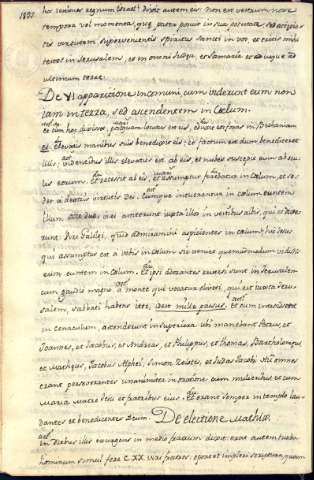 hoc restitues regnum Israel? Dixit autem eis, non est vestrum nosse
tempora vel momenta, quæ pater posuit in sua potestate, sed accipie-
tis virtutem supervenientis spiritus sancti in vos, et eritis mihi
testes in Jerusalem, et in omni Judæa, et Samaria et usque ad
ultimum terræ.
De VI apparicione in communi cum viderunt eum non
iam in terra, sed ascendentem in Cœlum.
et cum hæc dixisset, postquam locutus est eis, eduxit eos foras in Bethaniam
et elevatis manibus suis benedixit eis; et factum est dum benediceret
illis, videntibus illis elevatus est ab eis, et nubes suscepit eum ab ocu-
lis eorum. et recessit ab eis, et assumptus ferebatur in Cœlum, et se-
det a dextris Cumque intuerentur in Cœlum euntem
illum, ecce duo viri astiterunt iuxta illos in vestibus albis, qui et dixe-
runt: Viri Galilei, quid admiramini aspicientes in Cœlum? hic Jesus
qui assumptus est a vobis in Cœlum sic veniet quemadmodum vidistis
eum euntem in Cœlum. Et ipsi adorantes reversi sunt in Jerusalem
cum gaudio magno a monte qui vocatur oliveti, qui est iuxta Jeru-
salem, sabbati habens iter, et cum introissent
in cenaculum, ascenderunt in superiora ubi manebant Petrus, et
Joannes, et Jacobus, et Andreas, et Philippus, et Thomas, Bartholomeus
et Matheus, Jacobus Alphei, Simon Zelotes, et Judas Jacobi. Hi omnes
erant perseverantes unanimiter in oratione cum mulieribus et cum
Maria Matre Jesu et fratribus eius. Et erant semper in templo lau-
dantes et benedicentes Deum. De electione Mathiæ.
In diebus illis exurgens in medio fratrum dixit: erat autem turba
hominum simul fere CXX viri fratres, oportet impleri scripturam, quam